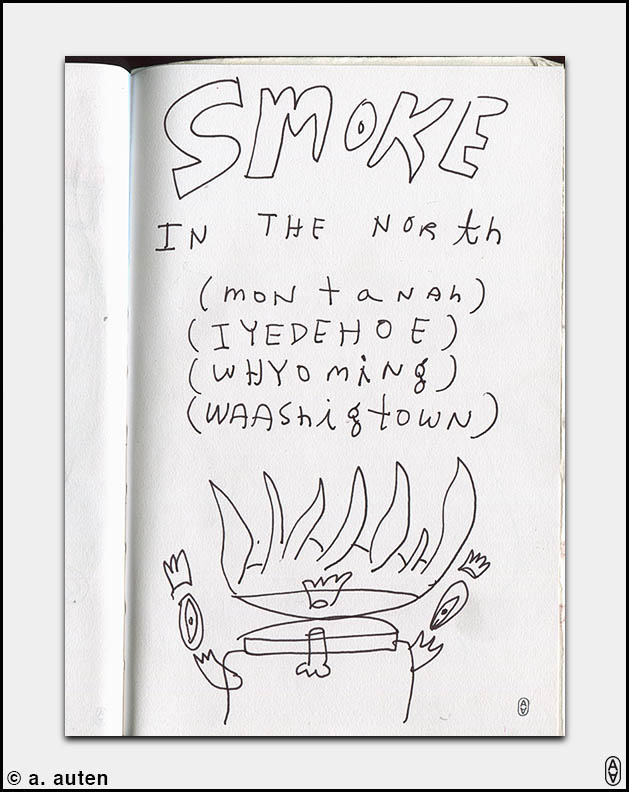 SMOKE
IN THE NORth
(mON taNAh)
(IYEDEHOE)
(WHYOmiNg)
(WAAShigtOWN)
© a. auten